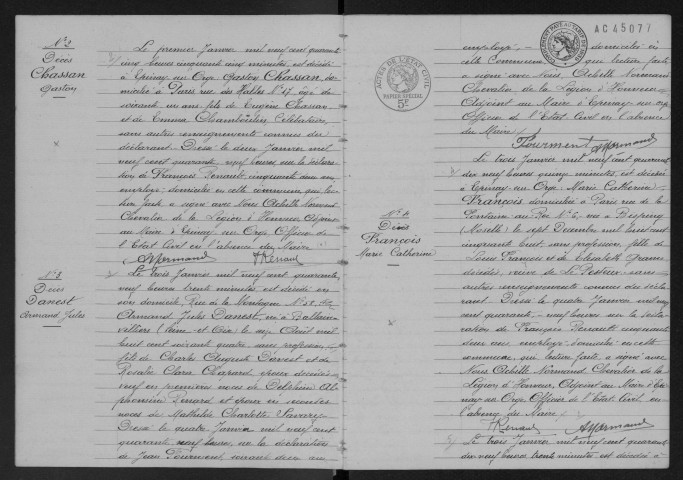 N° 2
Décès
Chassan
Gaston
Le premier Janvier mil neuf cent quarante
cinq heures cinquante cinq minutes, est décédé
à Epinay sur Orge Gaston Chassan, do-
micilié à Paris rue des Halles N° 17, âgé de
soixante un ans fils de Eugène Chassan
et de Emma Célibataire,
sans autres renseignements connus du
déclarant. Dressé le deux Janvier mil
neuf cent quarante, neuf heures, sur la déclara-
tion de François Renault cinquante deux ans,
employé, domicilié en cette commune, qui lec-
ture faite a signé avec Nous Achille Normand
Chevalier de la Légion d'Honneur, Adjoint
au Maire d'Epinay sur Orge Officier de
l'Etat Civil en l'absence du Maire
ANormand Renaud
N° 3
Décès
Danest
Armand Jules
Le trois Janvier mil neuf cent quarante,
neuf heures trente minutes est décédé en
son domicile Rue de la Montagne N° 58,
Armand Jules Danest, né à Ballain-
villiers (Seine et Oise) le Août mil
huit cent soixante quatre, sans profession,
fils de Charles Auguste Danest et de
Rosalie Clara Chapard, époux décédés
veuf en premières noces de Delphine Al-
phonsine Pinard et époux en secondes
noces de Mathilde Charlotte Savary.
Dressé le quatre Janvier mil neuf cent
quarante, neuf heures, sur la déclaration
de Jean Fourment, ans
employé, domicilié en
cette Commune, qui lecture faite
a signé avec Nous, Achille Normand
Chevalier de la Légion d'Honneur
Adjoint au Maire d'Epinay sur Orge
Officier de l'Etat Civil en l'absence
du Maire
Fourment ANormand
ACTES DE L'ETAT CIVIL
PAPIER SPECIAL
5F
AC 45077
N° 4
Décès
François
Marie Catherine
Le trois Janvier mil neuf cent quarante
dix neuf heures quinze minutes, est décédée
à Epinay sur Orge Marie Catherine
François, domiciliée à Paris rue de la
Fontaine au Roi N° 6, née à
(Moselle) le sept Décembre mil huit cent
cinquante huit, sans profession, fille de
François et de Elisabeth
décédés, veuve de Le Pesteur, sans
autres renseignements connus du décla-
rant. Dressé le quatre Janvier mil neuf
cent quarante, neuf heures sur la décla-
ration de François Renault cinquante
deux ans, employé, domicilié en cette
commune, qui lecture faite, a signé avec
Nous Achille Normand Chevalier de la
Légion d'Honneur, Adjoint au Maire d'Epi-
nay sur Orge Officier de l'Etat Civil en
l'absence du Maire
Renaud ANormand
Le trois Janvier mil neuf cent quarante
dix neuf heures trente minutes est décédée à